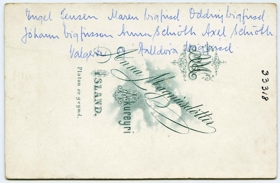 Engel Jensen Maren Vigfúsd Oddný Vigfúsd
Jóhann Vigfússon Anna Schiöth Axel Schiöth
Valgerð Halldóra Vigfúsd
Anna Magnúsdóttir
Akureyri
ÍSLAND.
Platan er geymd.
33318